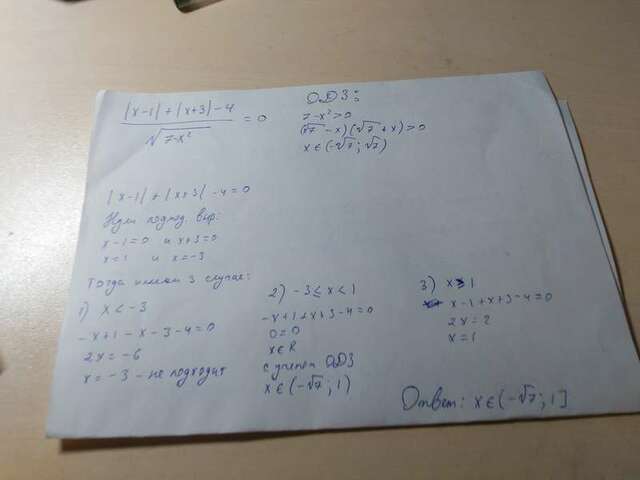 |x-1|+|x+3|-4
√7-x² = 0
ОДЗ:
7-x²>0
(√7-x)(√7+x)>0
x∈(-√7;√7)
|x-1|+|x+3|-4=0
Нули подмод. выр:
x-1=0 и x+3=0
x=1 и x=-3
Тогда имеем 3 случая:
1) x<-3
-x+1-x-3-4=0
2x=-6
x=-3-не подходит
2) -3≤x<1
-x+1+x+3-4=0
0=0
x∈R
с учетом ОДЗ
x∈(-√7;1)
3) x≥1
x-1+x+3-4=0
2x=2
x=1
Ответ: x∈(-√7;1]